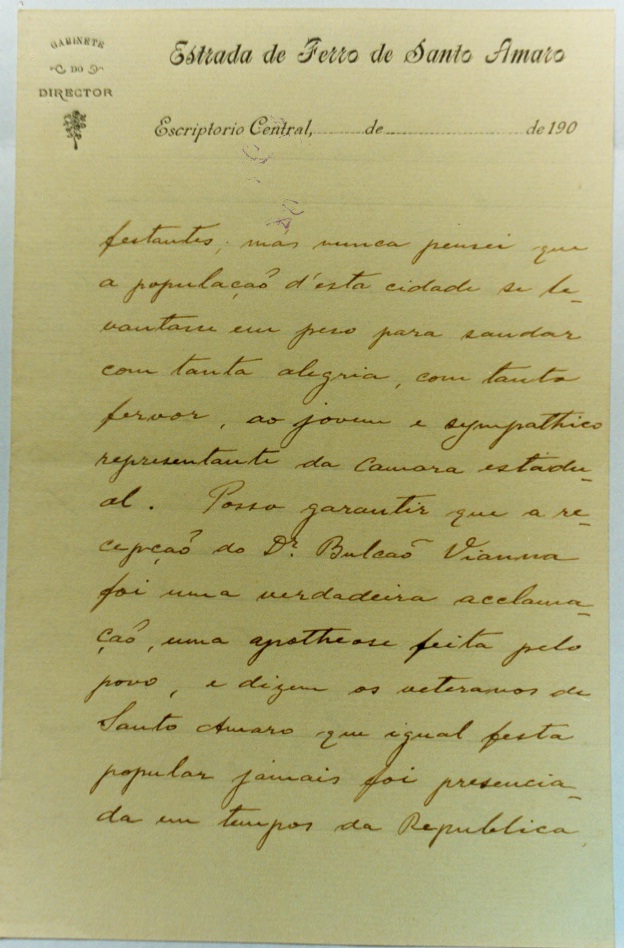 GABINETE
DO
DIRECTOR
Estrada de Ferro de Santo Amaro
Escriptorio Central, de de 190
festantes; mas nunca pensei que
a população d'esta cidade se le-
vantasse em peso para saudar
com tanta alegria, com tanto
fervor, ao jovem e sympathico
representante da Camara estadu-
al. Posso garantir que a re-
cepção do Dr. Bulcão Vianna
foi uma verdadeira acclama-
ção, uma apotheose feita pelo
povo, e dizem os veteranos de
Santo Amaro que igual festa
popular jamais foi presencia-
da em tempos da Republica